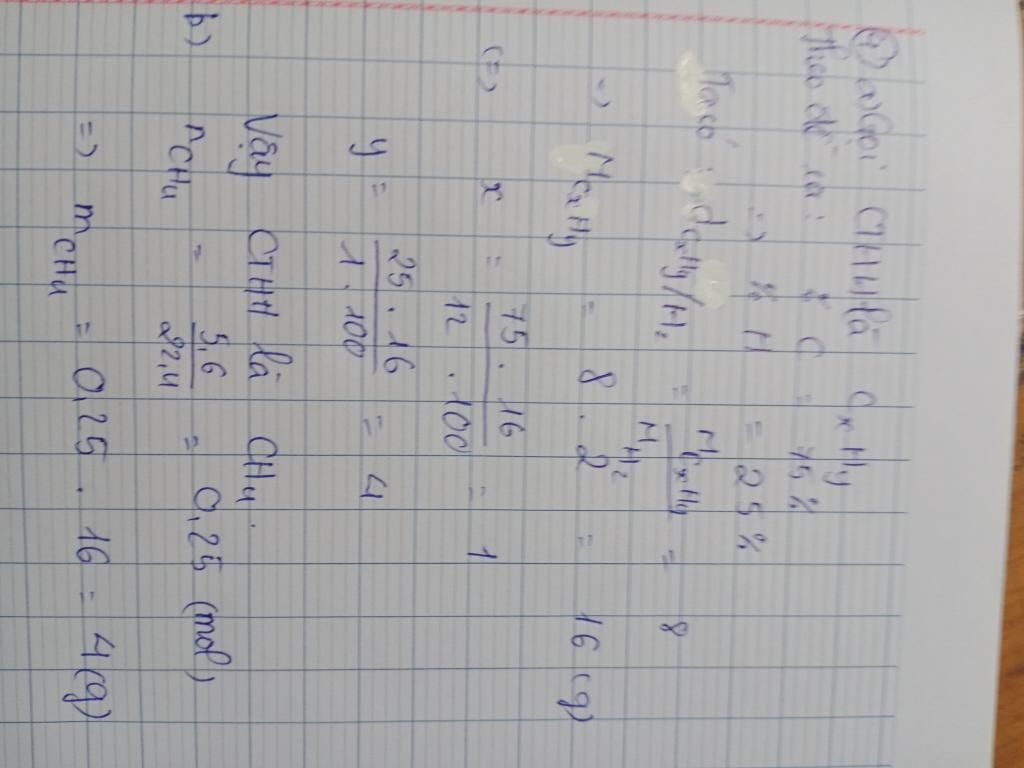 ④ a) Gọi CTHH là CxHy
Theo đề ta: % C = 75%
=> % H = 25%
Ta có: dCxHy/H2 = MCxHy/MH2 = 8
=> MCxHy = 8 . 2 = 16 (g)
(=) x = 75 . 16 / 12 . 100 = 1
y = 25 . 16 / 1 . 100 = 4
Vậy CTHH là CH4.
b) nCH4 = 5,6/22,4 = 0,25 (mol)
=> mCH4 = 0,25 . 16 = 4(g)